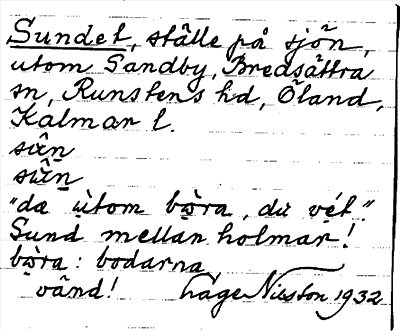 Sundet, ställe på sjön,
utom Sandby, Bredsättra
sn, Runstens hd, Öland,
Kalmar l.
sûṇ
sûṇ
"da ùtom bọ̀ra, du vét."
Sund mellan holmar!
bọ̀ra: bodarna,
vänd! Åage Nilsson 1932